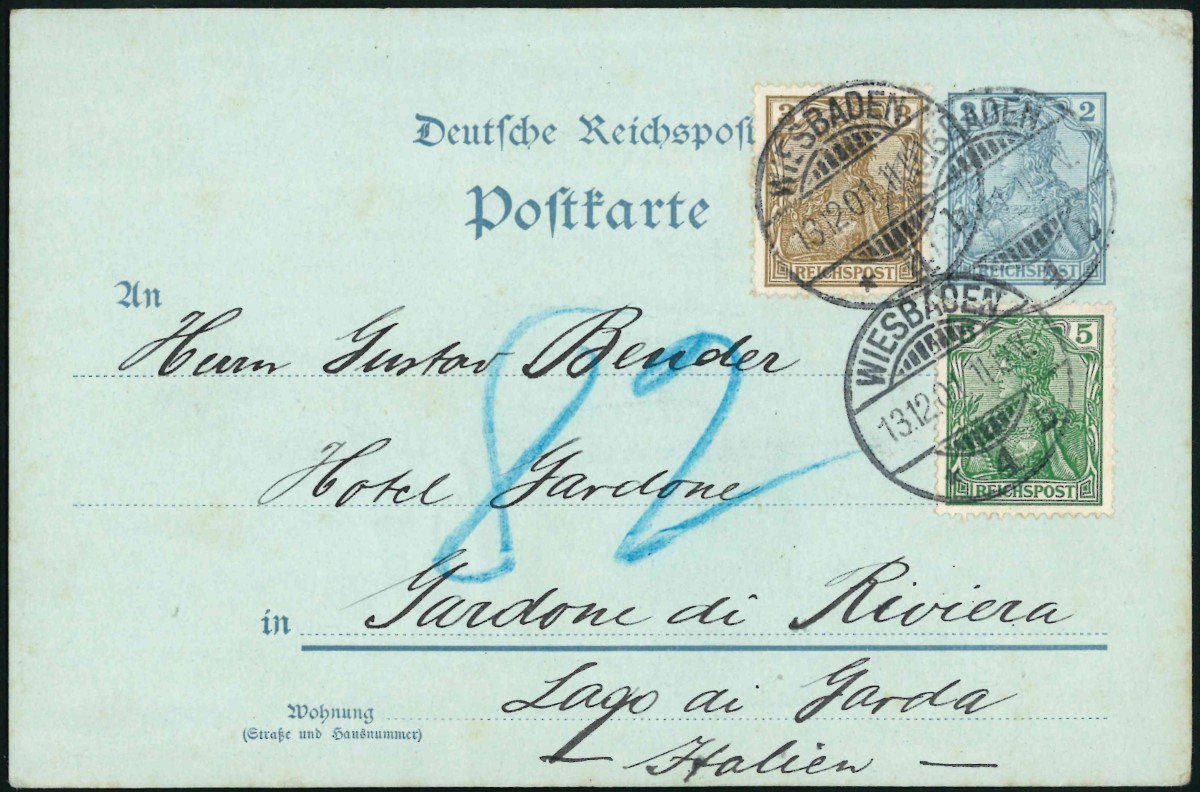 Deutsche Reichspost
Postkarte
3 3
REICHSPOST
2 2
REICHSPOST
WIESBADEN
13.12.01. 11
* 1.
WIESBADEN
1
5
REICHSPOST
WIESBADEN
13.12.01. 11
* 1
An
Herrn Gustav Bender
Hotel Gardone
82
in Gardone di Riviera
Lago di Garda
Wohnung
(Straße und Hausnummer)
– Italien –